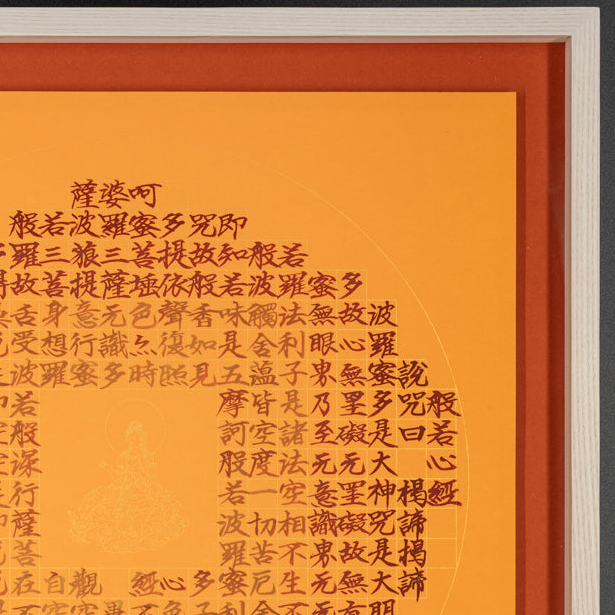 薩婆呵
般若波羅蜜多咒即
羅三藐三菩提故知般若
得故菩提薩埵依般若波羅蜜多
舌身意无色聲香味觸法無故波
受想行識亦復如是舍利眼心羅
波羅蜜多時照見五蘊子界無蜜說
若 摩皆是乃罣多咒般
般 訶空諸至礙是曰若
深 般度法无无大 心
行 若一空意罣神揭經
薩 波切相識礙咒諦
菩 羅苦不界故是揭
在自觀 經心多蜜厄生无無大諦